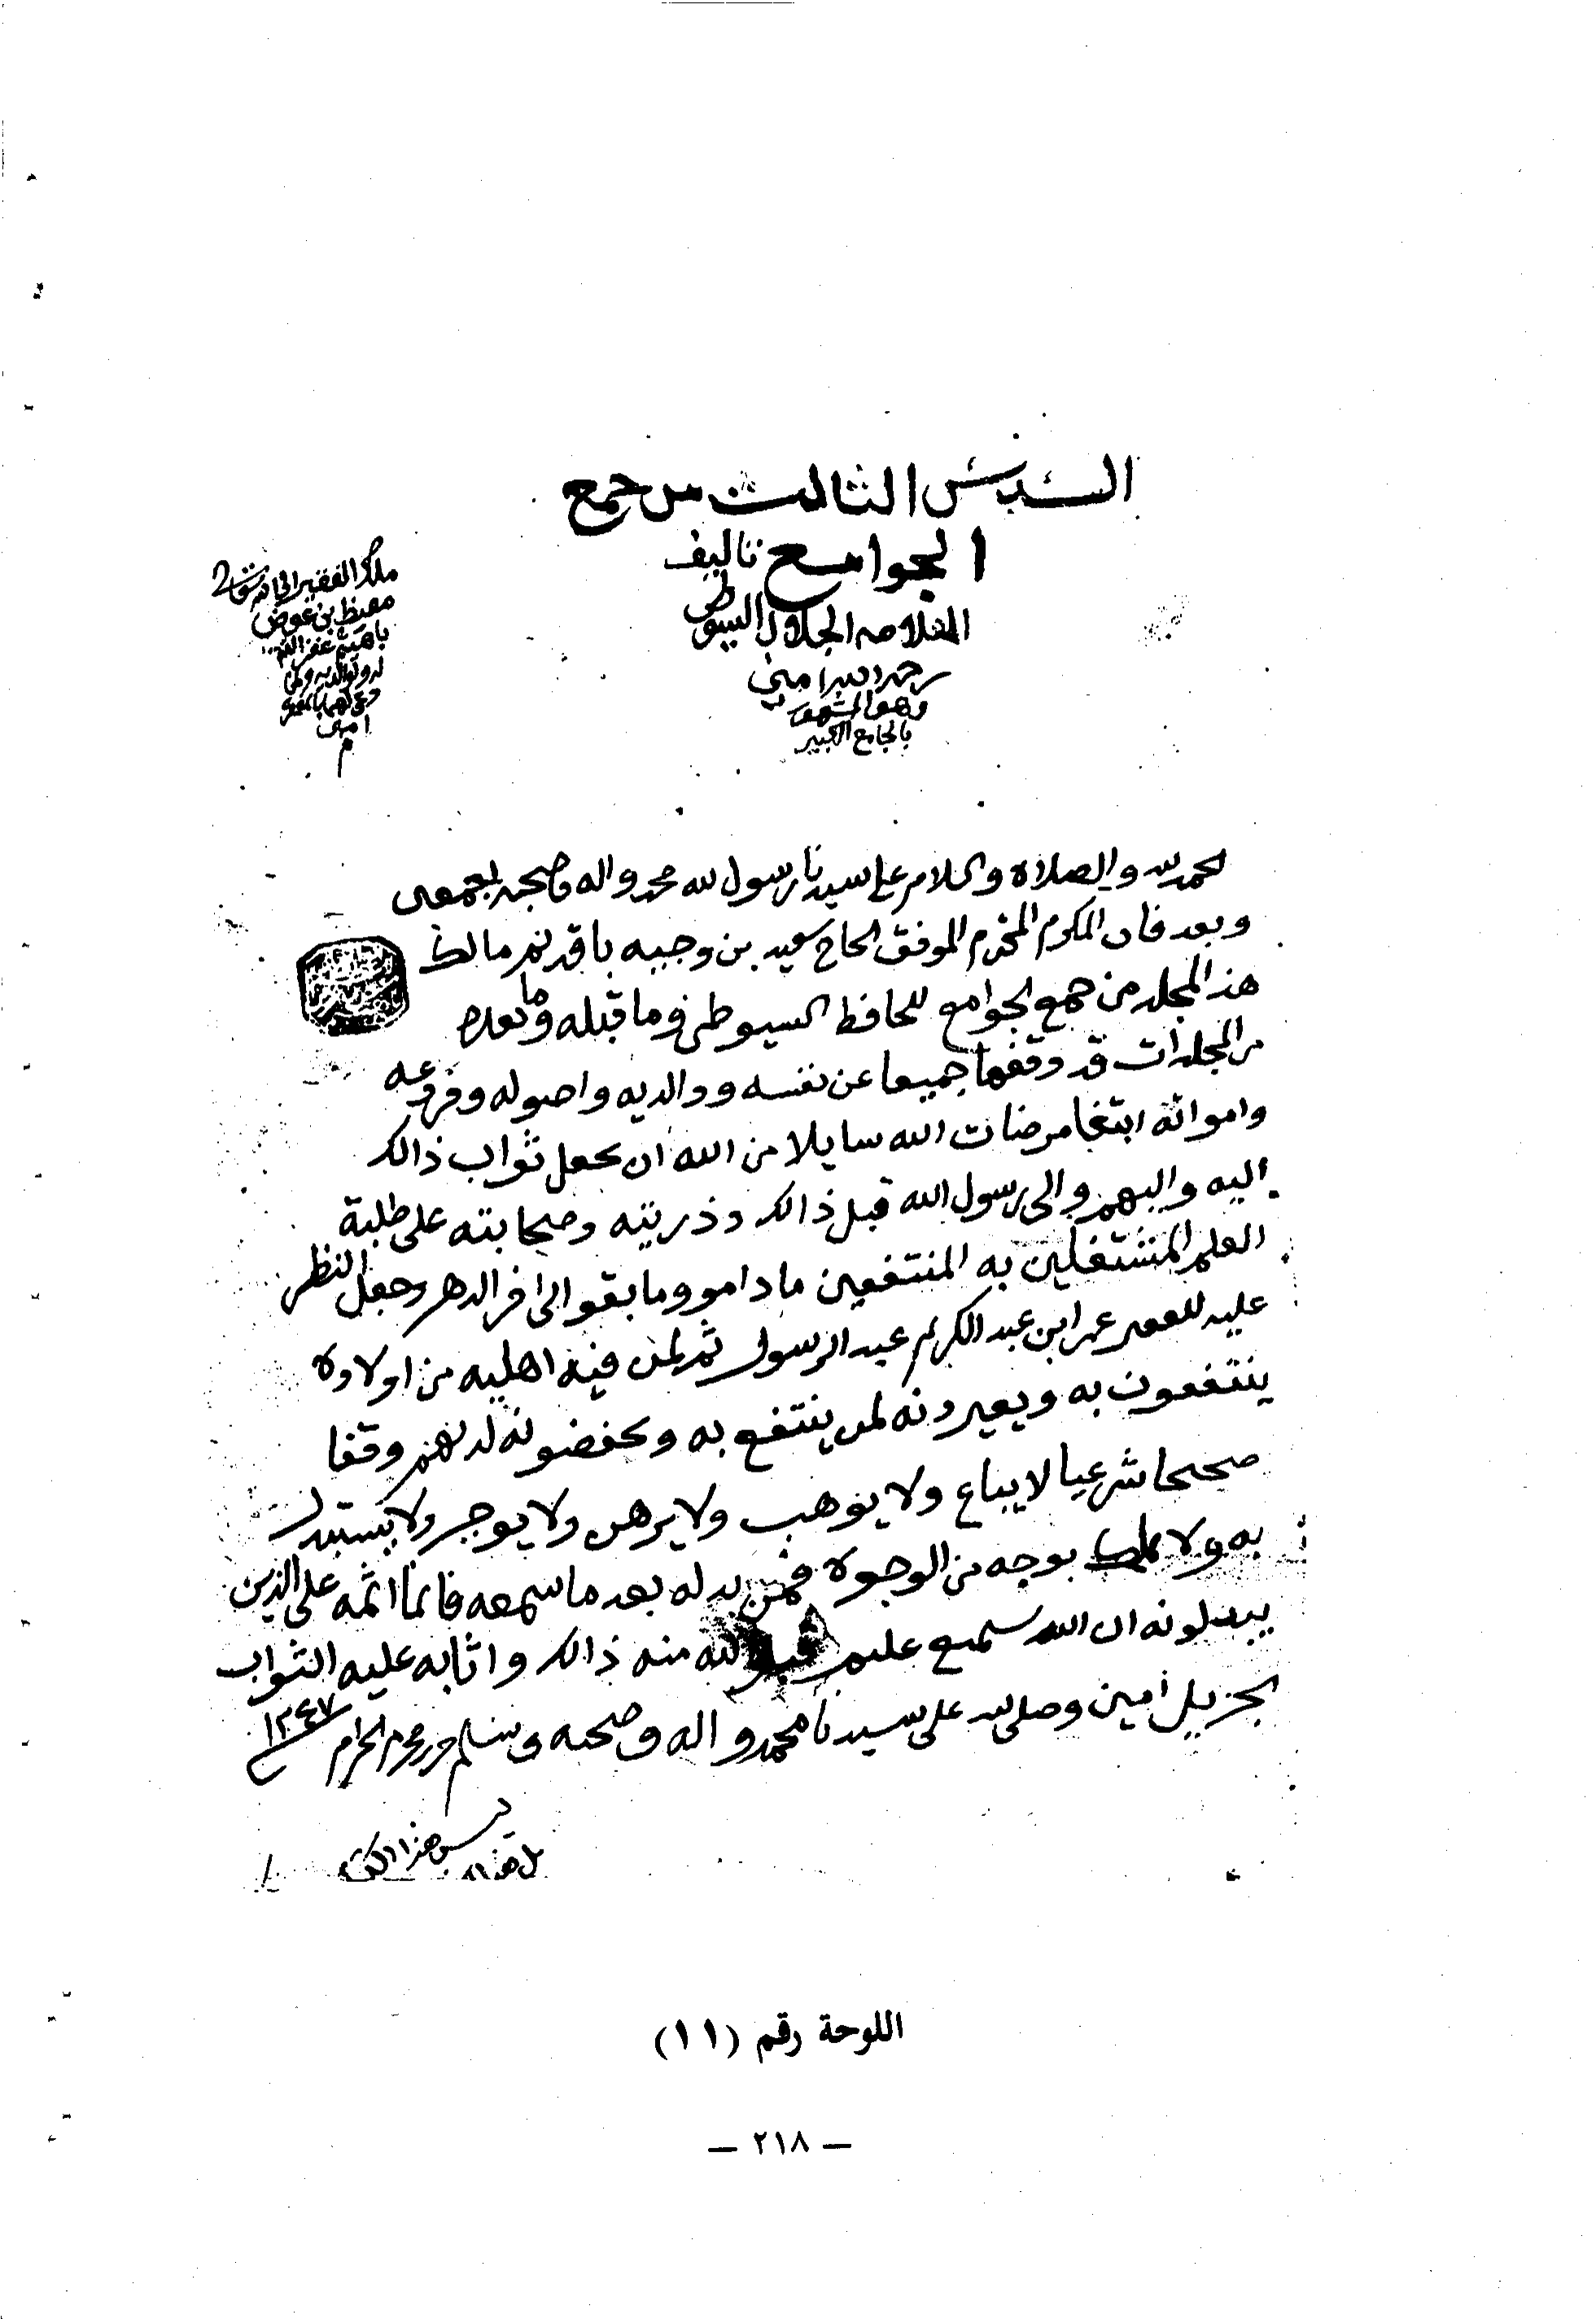 السدس الثالث من جمع
الجوامع تاليف
العلامه الجلال السيوطي
رحمه الله امين
وهو المشهور
بالجامع الكبير
ملك الفقير الى الله تعالى
بن عوض
غفر الله
له ولوالديه
امين
الحمد لله والصلاة والسلام على سيدنا رسول الله محمد واله وصحبه اجمعين
وبعد فان المكرم المحترم الموفق الحاج سعيد بن وجيه مالك
هذ المجلد من جمع الجوامع للحافظ السيوطي وما قبله وما بعده
من المجلدات قد وقفها جميعا عن نفسه ووالديه واصوله وفروعه
وامواته ابتغا مرضات الله سايلا من الله ان يجعل ثواب ذالك
اليه واليهم والى رسول الله قبل ذالك وذريته وصحابته على طلبة
العلم المشتغلين به المنتفعين ما دامو وما بقو الى اخر الدهر وجعل النظر
عليه للعم عمر ابن عبد الكريم عبد الرسول ثم لمن فيه اهليه من اولاده
ينتفعون به ويعيرونه لمن ينتفع به ويحفضونه لديهم وقفا
صحيحا شرعيا لا يباع ولا يوهب ولا يرهن ولا يوجر ولا يستبدل
به ولا يملك بوجه من الوجوه فمن بدله بعد ما سمعه فانما اثمه على الذين
يبدلونه ان الله سميع عليم قبل الله منه ذالك واثابه عليه الثواب
الجزيل امين وصلى الله على سيدنا محمد واله وصحبه وسلم محرم الحرام ١٢٤٧
هذا
اللوحة رقم (١١)
— ٢١٨ —